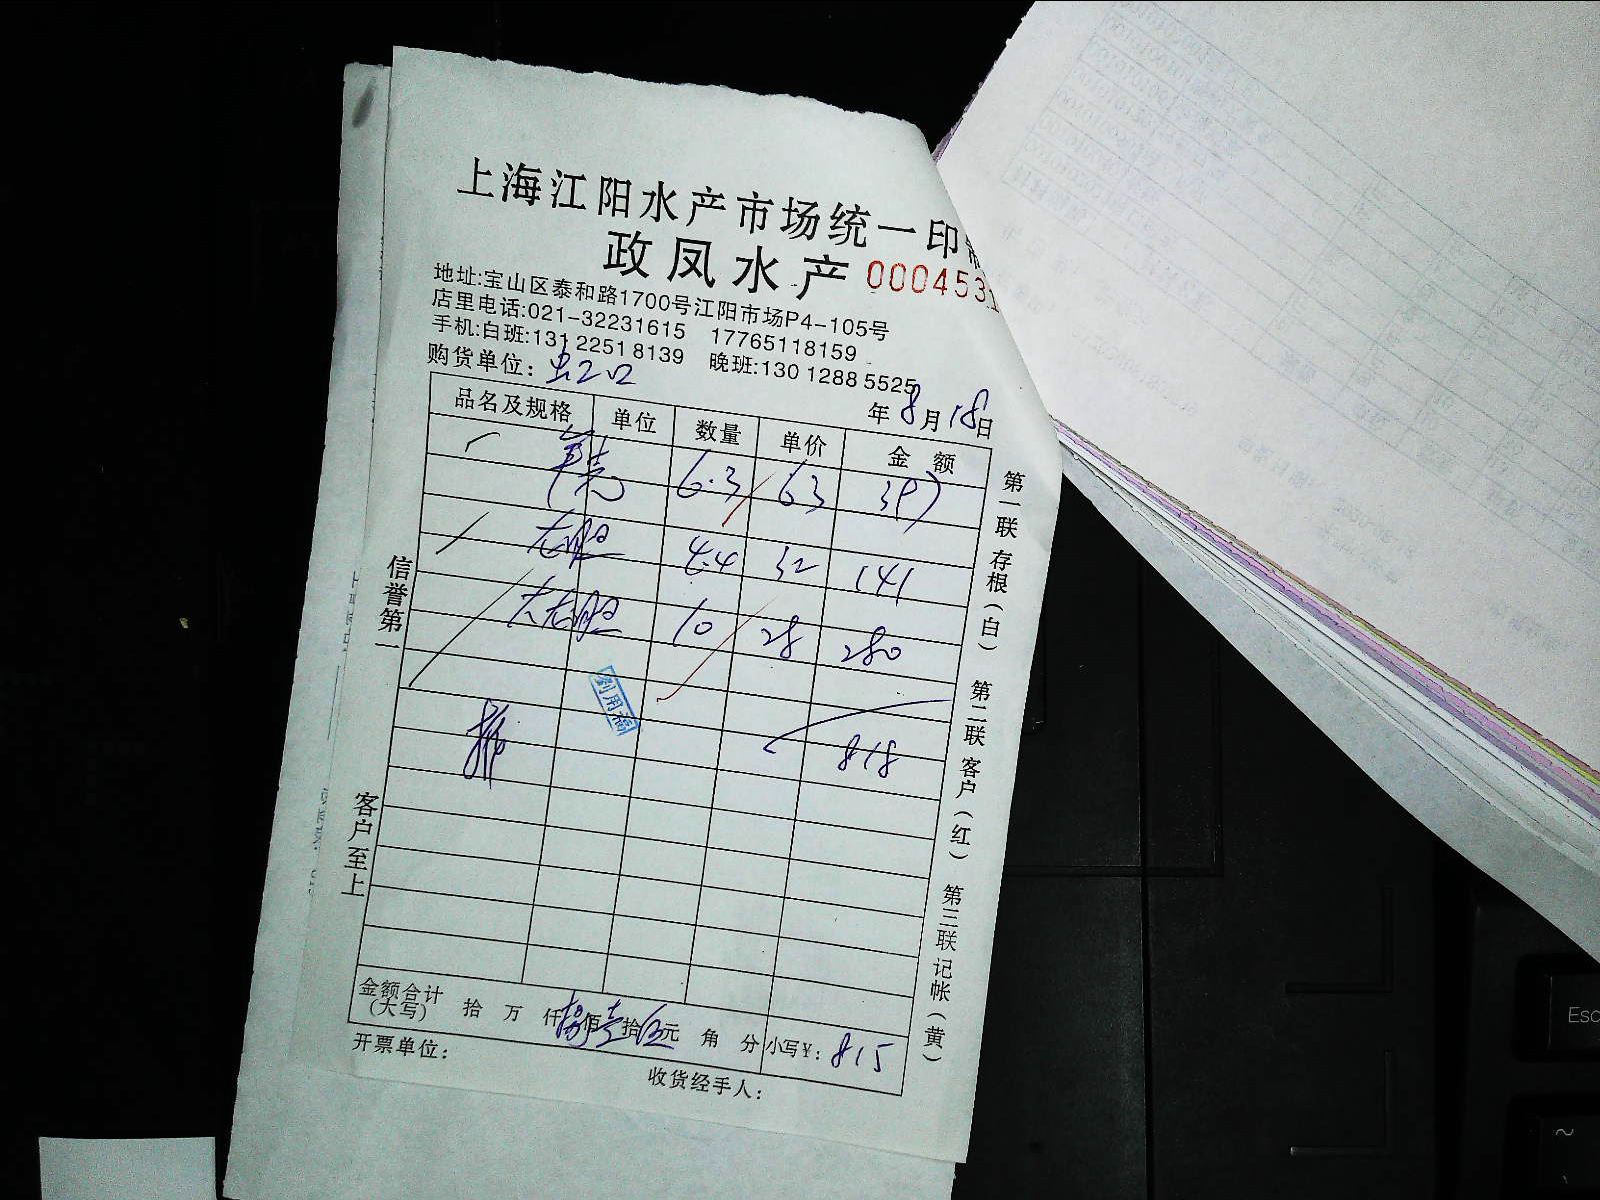 上海江阳水产市场统一印
政凤水产 000453
地址:宝山区泰和路1700号江阳市场P4-105号
店里电话:021-32231615 17765118159
手机:白班:131 2251 8139 晚班:130 1288 5525
购货单位: 虹口
年8月18日
品名及规格 单位 数量 单价 金额
6.3 63 397
老胆 4.4 32 141
大老胆 10 28 280
818
金额合计(大写) 拾 万 仟 捌佰壹拾伍元 角 分 小写¥: 815
开票单位:
收货经手人:
信誉第一
客户至上
第一联 存根(白) 第二联 客户(红) 第三联 记帐(黄)
Esc
~